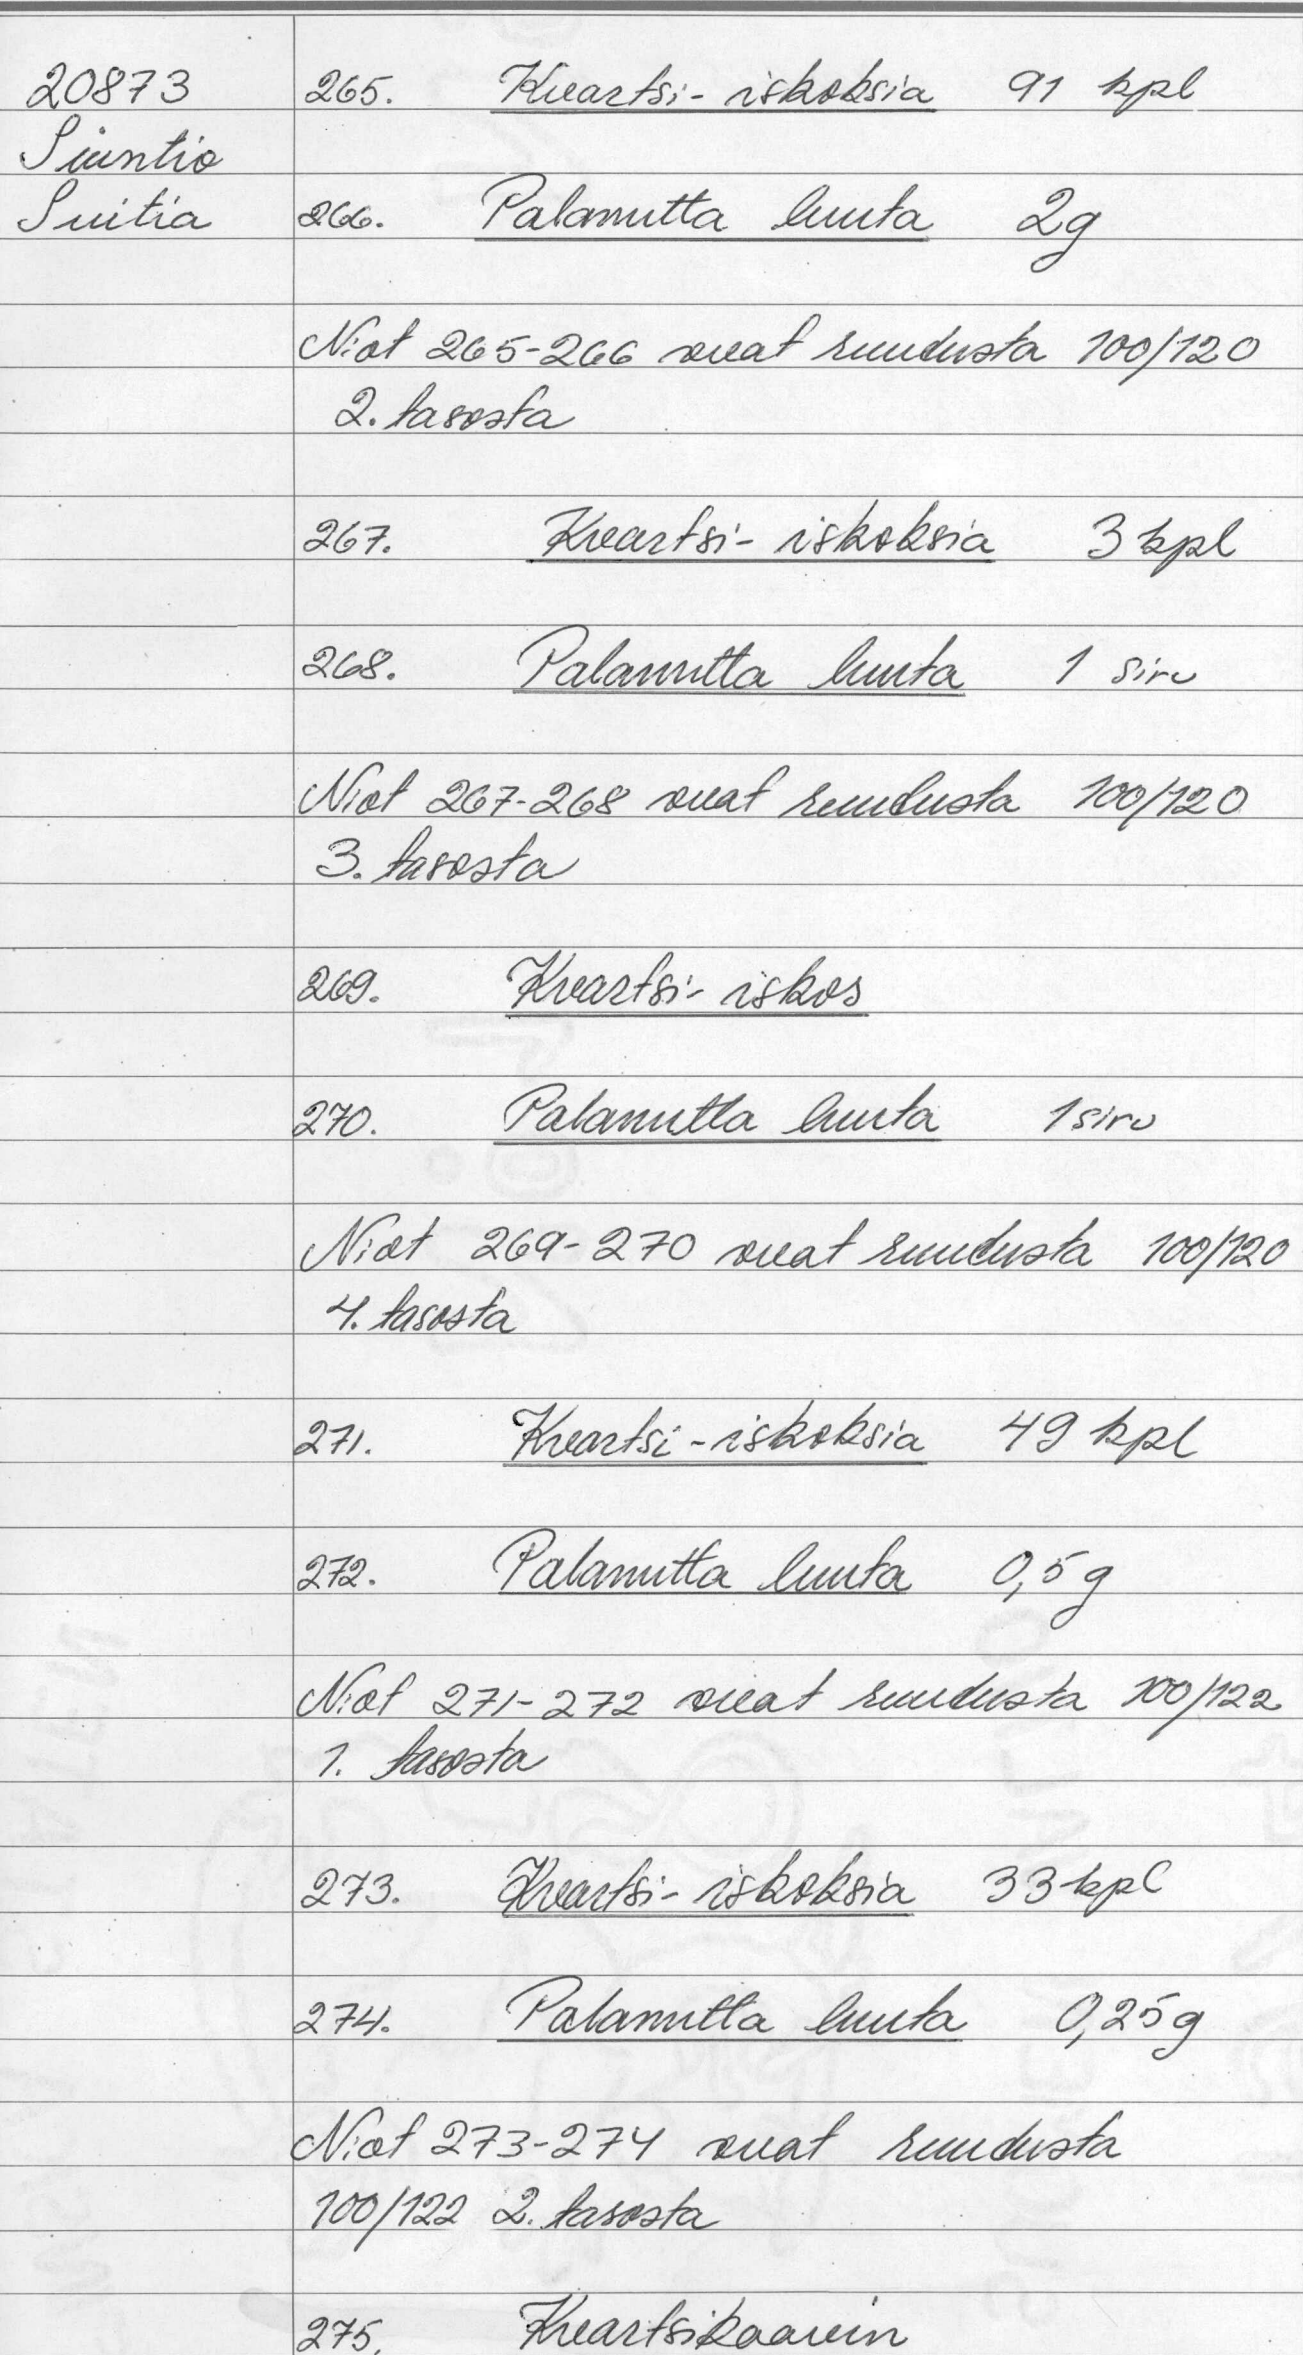 20873 265. Kvartsi-iskoksia 91 kpl
Siuntio
Suitia 266. Palanutta luuta 2g
N:ot 265-266 ovat ruudusta 100/120
2. tasosta
267. Kvartsi-iskoksia 3 kpl
268. Palanutta luuta 1 siru
N:ot 267-268 ovat ruudusta 100/120
3. tasosta
269. Kvartsi-iskos
270. Palanutta luuta 1 siru
N:ot 269-270 ovat ruudusta 100/120
4. tasosta
271. Kvartsi-iskoksia 49 kpl
272. Palanutta luuta 0,5 g
N:ot 271-272 ovat ruudusta 100/122
1. tasosta
273. Kvartsi-iskoksia 33 kpl
274. Palanutta luuta 0,25 g
N:ot 273-274 ovat ruudusta
100/122 2. tasosta
275. Kvartsikaavin